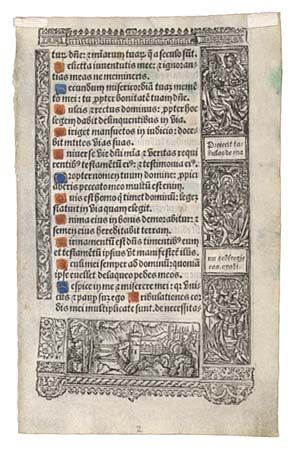 tuar dn̄e: z miſarum tuaꝝ q̄ a ſeculo ſūt.
Delicta iuuentutis mee: z ignoran
tias meas ne memineris.
Secundum miſericordiā tuaꝫ memē
to mei: tu, ꝓpter bonitatē tuam dn̄e.
Dulcis z rectus dominus: ꝓpter hoc
legem dabit delinquentibus in via.
Diriget manſuetos in iudicio: doce
bit mites vias ſuas.
Uniuerſe vie dn̄i miā z veritas requi
rentibꝰ teſtamētū eiꝰ: z teſtimonia eiꝰ.
Propter nomen tuum domine: ꝓpici
aberis peccato meo multū eſt enim.
Quis eſt homo q̄ timet dominū: legeꝫ
ſtatuit in via quam elegit.
Anima eius in bonis demorabitur: z
ſemen eius hereditabit terram.
Firmamentū eſt dn̄s timentibꝰ eum
et teſtamentū ipſius vt manifeſtet illis.
Oculi mei ſemper ad dominū: quoniā
ipſe euellet de laqueo pedes meos.
Reſpice in me z miſerere mei: qꝛ vni
cus z paup ſum ego. Tribulationes cor
dis mei multiplicate ſunt: de neceſſita
Proiecit ta
bulas de ma
nu
2